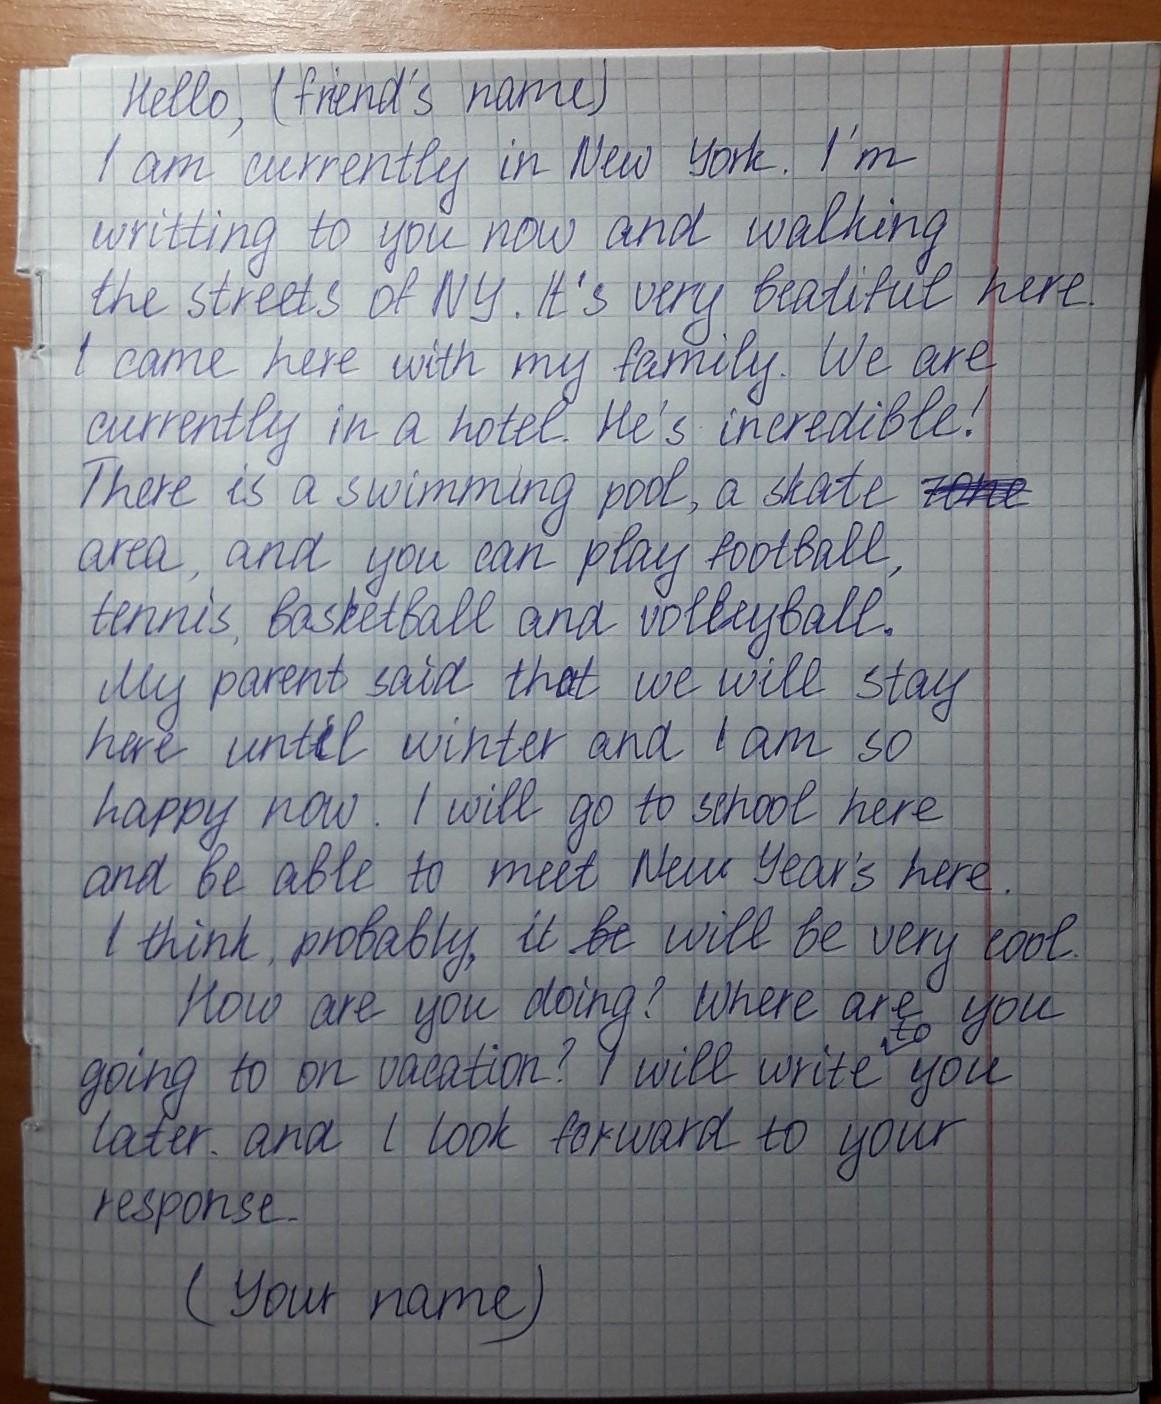 Hello, (friend's name)
I am currently in New York. I'm
writting to you now and walking
the streets of NY. It's very beatiful here.
I came here with my family. We are
currently in a hotel. He's incredible!
There is a swimming pool, a skate zone
area, and you can play football,
tennis, basketball and volleyball.
My parent said that we will stay
here until winter and I am so
happy now. I will go to school here
and be able to meet New Year's here.
I think, probably, it be will be very cool.
How are you doing? Where are you
going to on vacation? I will write to you
later. and I look forward to your
response.
(Your name)